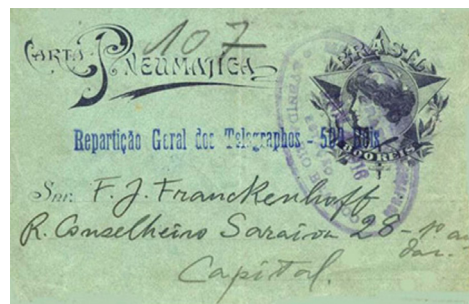 107
CARTA PNEUMATICA
BRASIL
Repartição Geral dos Telegraphos - 500 Réis
Snr. F. J. Franckenhoff
R. Conselheiro Saraiva 28 - 1º an
dar.
Capital.